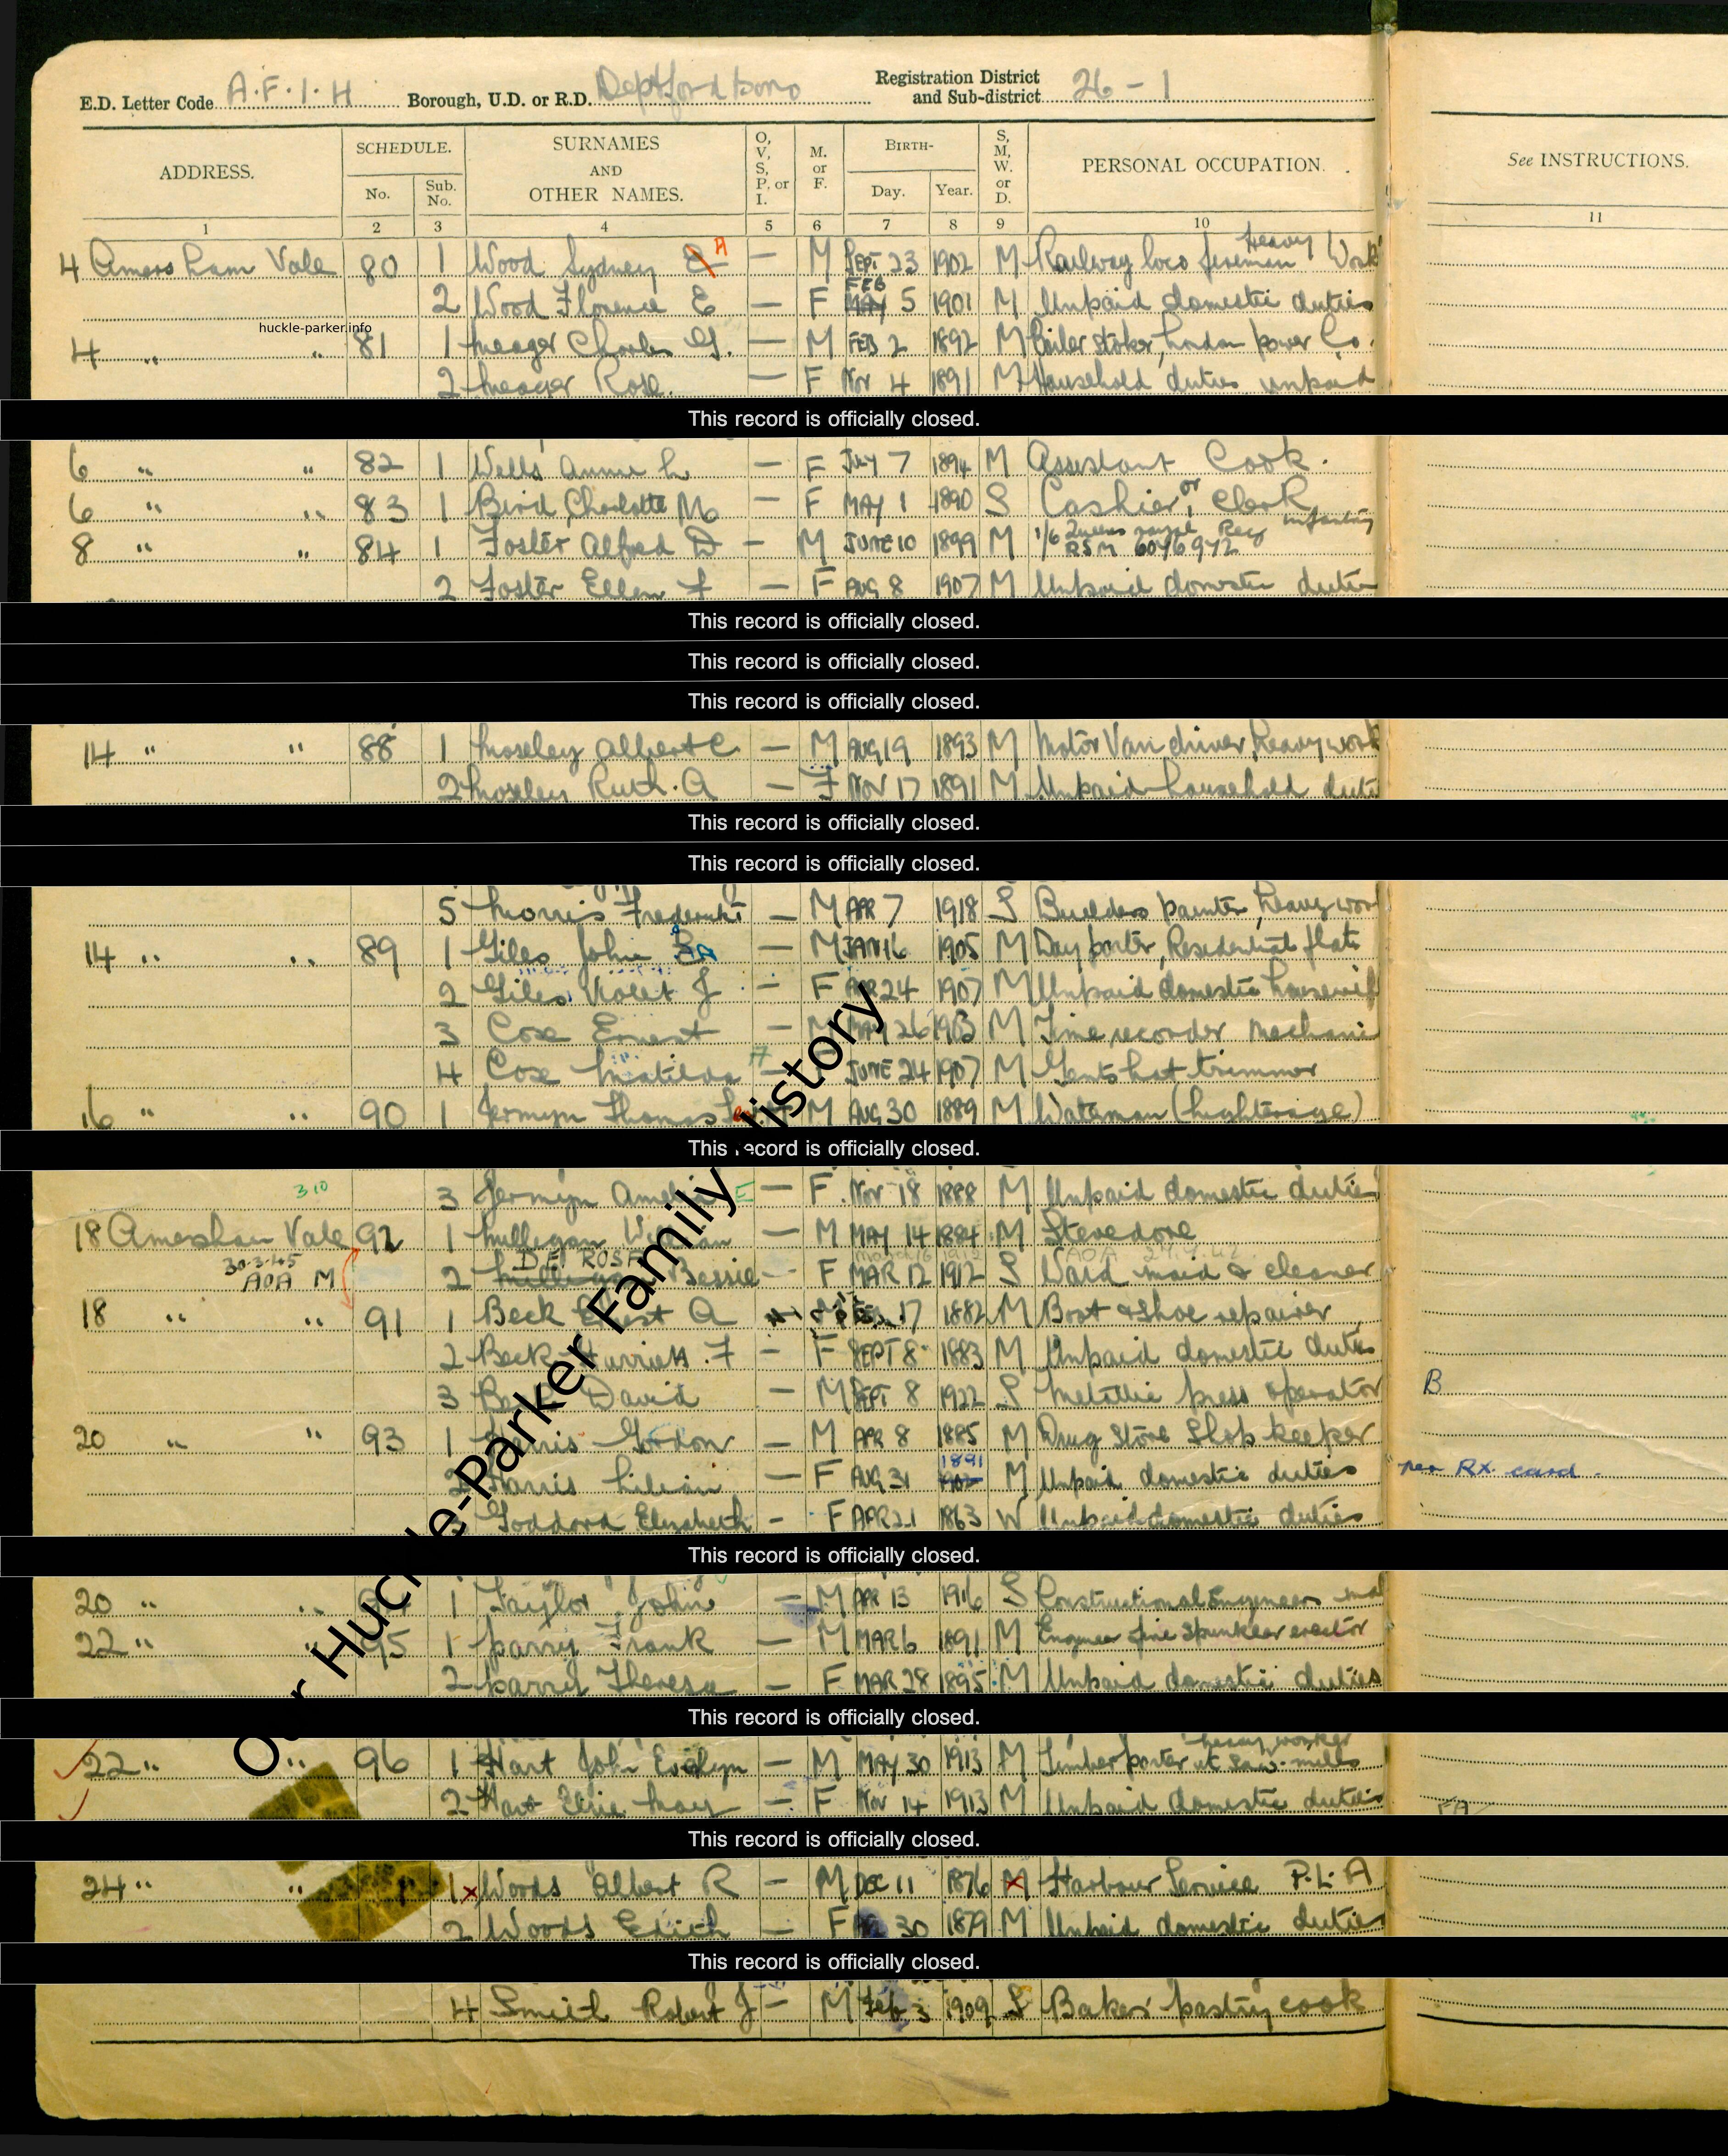 E.D. Letter Code A.F.I.H Borough, U.D. or R.D. Deptford boro Registration District and Sub-district 26 - 1
ADDRESS. SCHEDULE. No. Sub. No. SURNAMES AND OTHER NAMES. O, V, S, P. or I. M. or F. BIRTH- Day. Year. S, M, W. or D. PERSONAL OCCUPATION. See INSTRUCTIONS.
1 2 3 4 5 6 7 8 9 10 11
4 Amersham Vale 80 1 Wood Sydney E A — M SEPT 23 1902 M Railway loco fireman Heavy Work
2 Wood Florence E — F MAY FEB 5 1901 M Unpaid domestic duties
huckle-parker.info
4 " " 81 1 Meager Charles G. — M FEB 2 1892 M Boiler Stoker, London Power Co.
2 Meager Rose. — F Nov 4 1891 M Household duties unpaid
This record is officially closed.
6 " " 82 1 Wells Annie L — F JULY 7 1894 M Assistant Cook.
6 " " 83 1 Bird Charlotte M — F MAY 1 1890 S Cashier, or Clerk
8 " " 84 1 Foster Alfred D — M JUNE 10 1899 M 1/6 Queens royal Reg infantry RSM 6076972
2 Foster Ellen F — F AUG 8 1907 M Unpaid domestic duties
This record is officially closed.
This record is officially closed.
This record is officially closed.
14 " " 88 1 Moseley Albert C. — M AUG 19 1893 M Motor Van driver, heavy work
2 Moseley Ruth. A — F Nov 17 1891 M Unpaid household duti
This record is officially closed.
This record is officially closed.
5 Morris Frederick — M APR 7 1918 S Builders painter, heavy wor
14 " " 89 1 Giles John — M JAN 16 1905 M Day porter, Residential flats
2 Giles Violet J — F APR 24 1907 M Unpaid domestic housewif
3 Cox Ernest — M MAY 26 1913 M Time recorder mechani
4 Cox Matilda H — JUNE 24 1907 M Gents hat trimmer
16 " " 90 1 Jermyn Thomas M AUG 30 1889 M Waterman (Lighterage)
This record is officially closed.
310 3 Jermyn Amelia E — F Nov 18 1888 M Unpaid domestic duties
18 Amersham Vale 92 1 Mulligan William — M MAY 14 1884 M Stevedore
30-3-45 AOA M 2 Mulligan DE ROSA Bessie — F MAR 12 1912 S Ward maid & cleaner
18 " " 91 1 Beck Ernest A 17 1882 M Boot & Shoe repairer
2 Beck Harriett. F — F SEPT 8 1883 M Unpaid domestic duties
3 Beck David — M SEPT 8 1922 S Metallic press operator B
20 " " 93 1 Harris Gordon — M APR 8 1885 M Drug Store Shop keeper
2 Harris Lilian — F AUG 31 1902 1891 M Unpaid domestic duties per Rx card.
3 Goddard Elizabeth — F APR 21 1863 W Unpaid domestic duties
This record is officially closed.
20 " " 94 1 Taylor John — M APR 13 1916 S Constructional Engineer
22 " " 95 1 Parry Frank — M MAR 6 1891 M Engineer fire Sprinkler erector
2 Parry Theresa F MAR 28 1895 M Unpaid domestic duties
This record is officially closed.
22 " " 96 1 Hart John Evelyn — M MAY 30 1913 M Timber porter at Saw-mills heavy worker
2 Hart Elsie May — F Nov 14 1913 M Unpaid domestic duties FA
This record is officially closed.
24 " " 1 x Woods Albert R — M DEC 11 1876 M Harbour Service P.L.A
2 Woods Edith — F 30 1879 M Unpaid domestic duties
This record is officially closed.
4 Smith Robert J — M Feb 3 1909 S Baker pastry cook
Our Huckle-Parker Family History